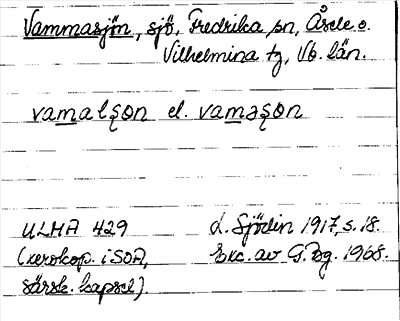 Vammasjön, sjö, Fredrika sn, Åsele o.
Vilhelmina tg, Vb. län.
vamalşon el. vamaşon
ULMA 429 L. Sjödin 1917, s. 18.
(xerokop. i SOA, Exc. av G. Bg. 1968.
särsk. kapsel)